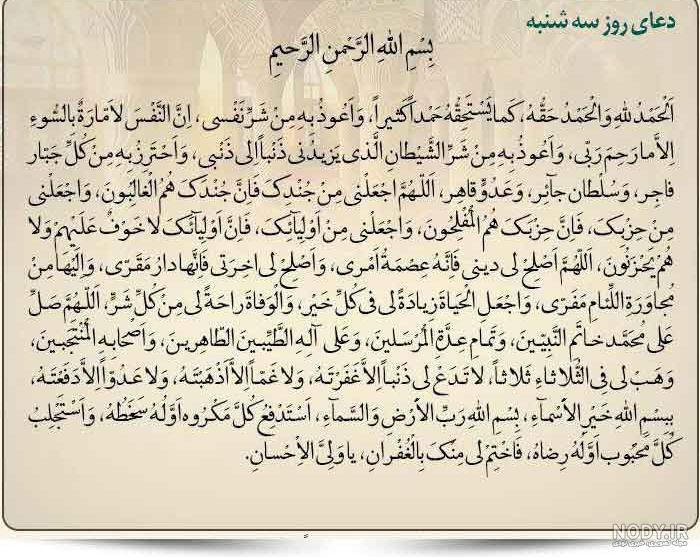 دعای روز سه شنبه
بِسْمِ اللهِ الرَّحْمنِ الرَّحیمِ
اَلْحَمْدُ للهِ وَالْحَمْدُ حَقُّهُ، کَما یَسْتَحِقُّهُ حَمْداً کَثیراً، وَاَعُوذُ بِهِ مِنْ شَرِّ نَفْسی، اِنَّ النَّفْسَ لاَمّارَةٌ بِالسُّوءِ
اِلاَّ ما رَحِمَ رَبّی، وَاَعُوذُ بِهِ مِنْ شَرِّ الشَّیْطانِ الَّذی یَزیدُنی ذَنْباً اِلی ذَنْبی، وَاَحْتَرِزُ بِهِ مِنْ کُلِّ جَبّار
فاجِر، وَسُلْطان جائِر، وَعَدُوٍّ قاهِر، اَللّهُمَّ اجْعَلْنی مِنْ جُنْدِکَ فَاِنَّ جُنْدَکَ هُمُ الْغالِبُونَ، وَاجْعَلْنی
مِنْ حِزْبِکَ، فَاِنَّ حِزْبَکَ هُمُ الْمُفْلِحُونَ، وَاجْعَلْنی مِنْ اَوْلِیآئِکَ، فَاِنَّ اَوْلِیآئَکَ لا خَوْفٌ عَلَیْهِمْ وَلا
هُمْ یَحْزَنُونَ، اَللّهُمَّ اَصْلِحْ لی دینی فَاِنَّهُ عِصْمَةُ اَمْری، وَاَصْلِحْ لی اخِرَتی فَاِنَّها دارُ مَقَرّی، وَاِلَیْها مِنْ
مُجاوَرَةِ اللِّئامِ مَفَرّی، وَاجْعَلِ الْحَیاةَ زِیادَةً لی فی کُلِّ خَیْر، وَالْوَفاةَ راحَةً لی مِنْ کُلِّ شَرٍّ، اَللّهُمَّ صَلِّ
عَلی مُحَمَّد خاتَمِ النَّبِیّینَ، وَتَمامِ عِدَّةِ الْمُرْسَلینَ، وَعَلی آلِهِ الطَّیِّبینَ الطّاهِرینَ، وَاَصْحابِهِ الْمُنْتَجَبینَ،
وَهَبْ لی فِی الثُّلاثاءِ ثَلاثاً، لا تَدَعْ لی ذَنْباً اِلاَّ غَفَرْتَهُ، وَلا غَمّاً اِلاَّ اَذْهَبْتَهُ، وَلا عَدُوّاً اِلاَّ دَفَعْتَهُ،
بِبِسْمِ اللهِ خَیْرِ الاَْسْمآءِ، بِسْمِ اللهِ رَبِّ الاَْرْضِ وَالسَّمآءِ، اَسْتَدْفِعُ کُلَّ مَکْرُوه اَوَّلُهُ سَخَطُهُ، وَاَسْتَجْلِبُ
کُلَّ مَحْبُوب اَوَّلُهُ رِضاهُ، فَاخْتِمْ لی مِنْکَ بِالْغُفْرانِ، یا وَلِیَّ الاِْحْسانِ.
NODY.IR